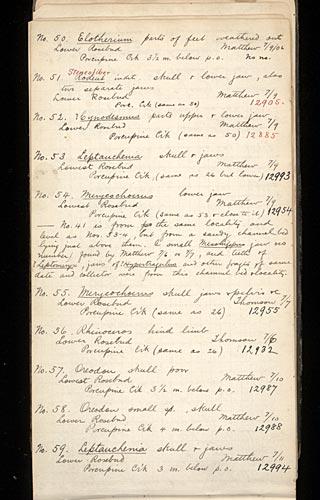 No. 50. Elotherium parts of feet weathered out
Lower Rosebud Matthew 7/9/06
Porcupine Crk 3½ m. below p.o. No no.
Steneofiber
No. 51. Rodent indet. skull & lower jaw, also
two separate jaws
Lower Rosebud Matthew 7/9
Porc. Crk (same as 50) 12905.
No. 52. ?Cynodesmus parts upper & lower jaw
Lowest Rosebud Matthew 7/9
Porcupine Crk (same as 50) 12885
No. 53. Leptauchenia skull & jaws
Lowest Rosebud Matthew 7/9
Porcupine Crk (same as 26 but lower) 12993
No. 54. Merycochoerus lower jaw
Lowest Rosebud Matthew 7/9
Porcupine Crk (same as 53 & close to it) 12954
— No. 41 is from the same locality and
level as Nos. 53-4 but from a sandy channel bed
lying just above them. a small Mesohippus jaw (no
number) found by Matthew 7/6 or 7/7, and teeth of
Leptomeryx, jaws of Hypertragulus and other frags. of same
date and collector were from this channel bed & locality.
No. 55. Merycochoerus skull jaws & pelvis &c
Lower Rosebud Thomson 7/7
Porcupine Crk (same as 26) 12955
No. 56. Rhinoceros hind limb
Lower Rosebud Thomson 7/6
Porcupine Crk (same as 26) 12932
No. 57. Oreodon skull poor
Lowest Rosebud Matthew 7/10
Porcupine Crk 3½ m. below p.o. 12987
No. 58. Oreodon small sp. skull
Lower Rosebud Matthew 7/10
Porcupine Crk 4 m. below p.o. 12988
No. 59. Leptauchenia skull & jaws
Lower Rosebud Matthew 7/11
Porcupine Crk 3 m. below p.o. 12994